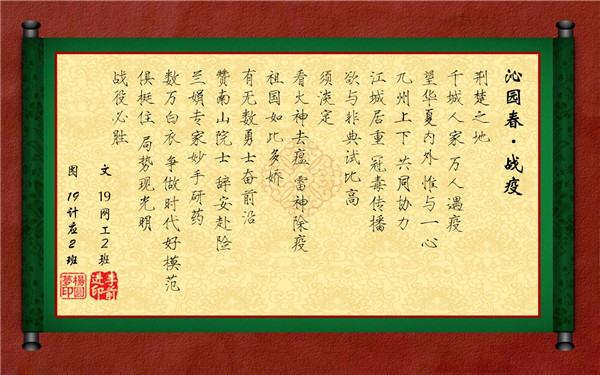 沁园春·战疫
荆楚之地
千城人家 万人遇疫
望华夏内外 惟与一心
九州上下 共同协力
江城居重 冠毒传播
欲与非典试比高
须淡定
看火神去瘟 雷神除疫
祖国如此多娇
有无数勇士奋前沿
赞南山院士 辞安赴险
兰娟专家妙手研药
数万白衣 争做时代好模范
俱挺住 局势现光明
战役必胜
文 19网工2班
图 19计应2班
李前进印
杨圆梦印